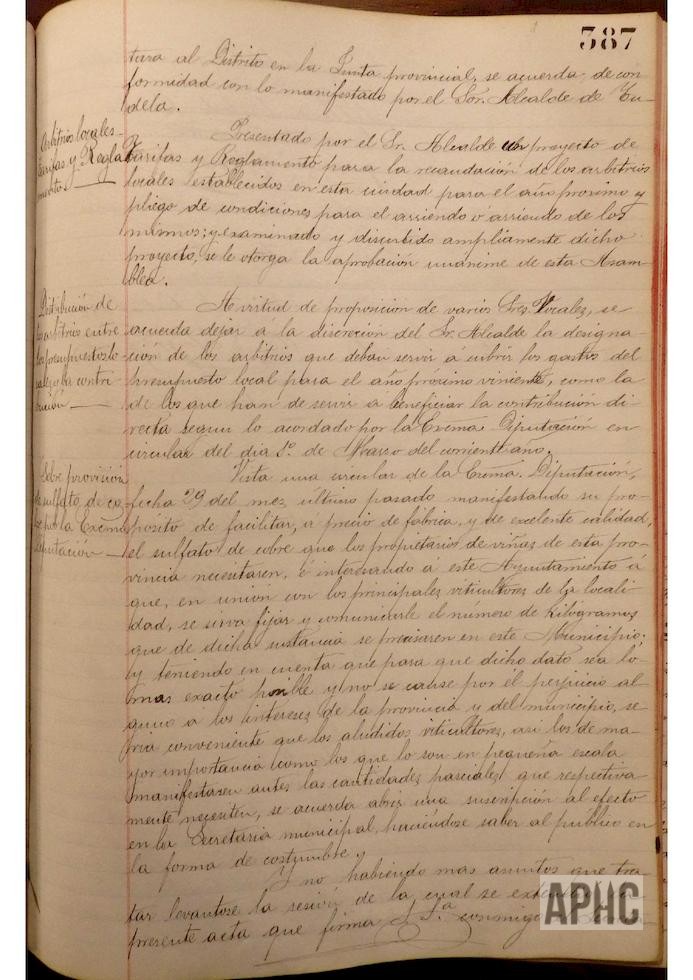 387
tura al Distrito en la Junta provincial, se acuerda de con
formidad con lo manifestado por el Sor. Alcalde de Tu-
dela.
Arbitrios locales-
Tarifas y Regla-
mentos
Presentado por el Sr. Alcalde un proyecto de
tarifas y Reglamento para la recaudación de los arbitrios
locales establecidos en esta ciudad para el año proximo y
pliego de condiciones para el arriendo o arriendo de los
mismos; y examinado y discutido ampliamente dicho
proyecto, se le otorga la aprobación unanime de esta Asam-
blea.
Distribución de
los arbitrios entre
los presupuestos lo
cales y la contri
bución
A virtud de proposicion de varios Sres. Vocales, se
acuerda dejar á la discreción del Sr. Alcalde la designa-
ción de los arbitrios que deban servir a cubrir los gastos del
presupuesto local para el año próximo viniente, como la
de los que han de servir á beneficiar la contribución di-
recta segun lo acordado por la Excma. Diputación en
circular del dia 1º. de Marzo del corriente año.
Sobre provisión
de sulfato de co
bre por la Excma
Diputación
Vista una circular de la Excma. Diputación,
fecha 29 del mes ultimo pasado manifestando su pro-
pósito de facilitar, a precio de fábrica, y de excelente calidad,
el sulfato de cobre que los propietarios de viñas de esta pro-
vincia necesitaren, é interesando á este Ayuntamiento á
que, en unión con los principales viticultores de la locali-
dad, se sirva fijar y comunicarle el número de kilogramos
que de dicha sustancia se precisaren en este Municipio;
y teniendo en cuenta que para que dicho dato sea lo
mas exacto posible y no se cause por el perjuicio al
guno a los intereses de la provincia y del municipio, se
ria conveniente que los aludidos viticultores, asi los de ma-
yor importancia como los que lo son en pequeña escala
manifestasen antes las cantidades parciales que respectiva-
mente necesiten, se acuerda abrir una suscripción al efecto
en la Secretaria municipal, haciendose saber al público en
la forma de costumbre y
Y no habiendo mas asuntos que tra-
tar levantose la sesión de la cual se
presente acta que firma S. Sª. conmigo
APHC